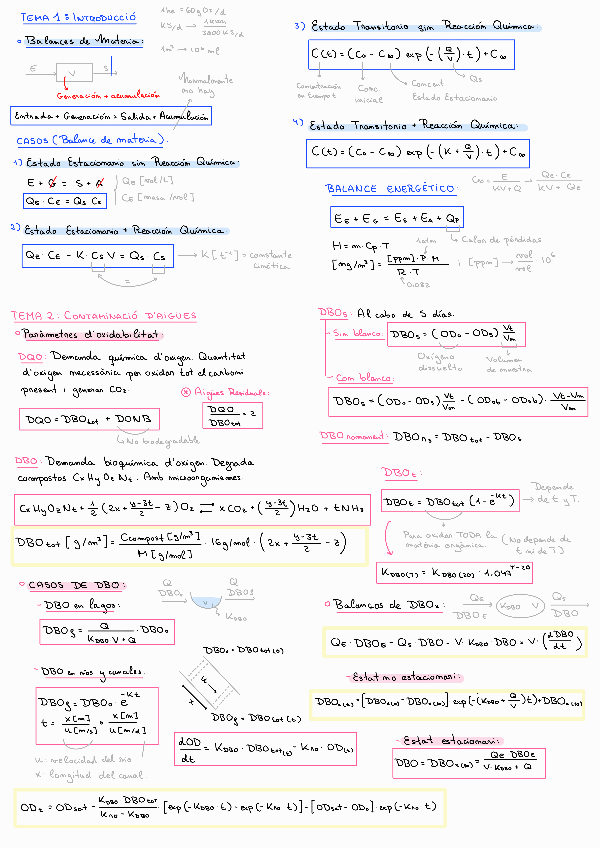 TEMA 1: INTRODUCCIÓ
○ Balances de Materia:
1m³ → 10⁶ ml
E
V
S
Normalmente
no hay
Generación + acumulación
Entrada + Generación = Salida + Acumulación
CASOS (Balance de materia).
1) Estado Estacionario sin Reacción Química:
E + G = S + A
QE [vol/t]
QE · CE = QS CS
CE [masa/vol]
2) Estado Estacionario + Reacción Química
QE · CE - K · CS V = QS CS → K [t⁻¹] = constante
cinética
=
3) Estado Transitorio sin Reacción Química:
C(t) = (C₀ - C∞) exp(-(Q/V)·t) + C∞
QS
Concentración
en tiempo t
Conc.
inicial
Concent
Estado Estacionario
4) Estado Transitorio + Reacción Química:
C(t) = (C₀ - C∞) exp(-(K + Q/V)·t) + C∞
C∞ = E/(KV+Q) → QE · CE/(KV + QE)
BALANCE ENERGÉTICO:
EE + EG = ES + EA + QP
Calor de pérdidas
H = m · Cp · T
1atm
[mg/m³] = [ppm] · P · M / R · T ; [ppm] → mol/mol 10⁶
0.082
TEMA 2: CONTAMINACIÓ D'AIGUES
○ Paràmetres d'oxidabilitat:
DQO: Demanda química d'oxigen. Quantitat
d'oxigen necessària per oxidar tot el carboni
present i generar CO₂.
⊗ Aigües Residuals:
DQO/DBOtot = 2
DQO = DBOtot + DONB
No biodegradable
DBO: Demanda bioquímica d'oxigen. Degrada
compostos CxHyOzNt. Amb microorganismes
CxHyOzNt + 1/2 (2x + (y-3t)/2 - z) O₂ ⇄ xCO₂ + ((y-3t)/2) H₂O + tNH₃
DBOtot [g/m³] = Ccompost [g/m³] / M [g/mol] · 16g/mol · (2x + (y-3t)/2 - z)
DBO₅: Al cabo de 5 días.
Sin blanco: DBO₅ = (OD₀ - OD₅) Vt/Vm
Oxígeno
disuelto
Volumen
de muestra
Com blanco:
DBO₅ = (OD₀ - OD₅) Vt/Vm - (OD₀b - OD₅b) · (Vt-Vm)/Vm
DBO romanent: DBOn₅ = DBOtot - DBO₅
DBOt:
DBOt = DBOtot (1 - e⁻ᵏᵗ)
Depende
de t y T.
Para oxidar TODA la
matèria orgànica.
(No depende de
t ni de T)
KDBO(T) = KDBO(20) · 1.047ᵀ⁻²⁰
○ CASOS DE DBO:
Q
DBO₀
V
Q
DBOf
KDBO
- DBO en lagos:
DBOf = Q/(KDBO V + Q) · DBO₀
- DBO en ríos y canales.
DBOf = DBO₀ e⁻ᴷᵗ
t = x[m]/u[m/s] = x[m]/u[m/d]
u: velocidad del río
x: longitud del canal
DBO₀ = DBOtot(0)
x
DBOf = DBOtot(t)
dOD/dt = KDBO · DBOtot(t) - KnO · OD(t)
○ Balances de DBO:
QE
DBOE
KDBO V
QS
DBO
QE · DBOE - QS · DBO - V · KDBO DBO = V · (dDBO/dt)
- Estat no estacionari:
DBO∞(t) = [DBO∞(0) - DBO∞(∞)] exp(-(KDBO + Q/V)t) + DBO∞(∞)
- Estat estacionari:
DBO = DBO∞(∞) = QE DBOE/(V · KDBO + Q)
ODt = ODsat - KDBO DBOtot/(KnO - KDBO) · [exp(-KDBO · t) - exp(-KnO t)] - [ODsat - OD₀] · exp(-KnO t)